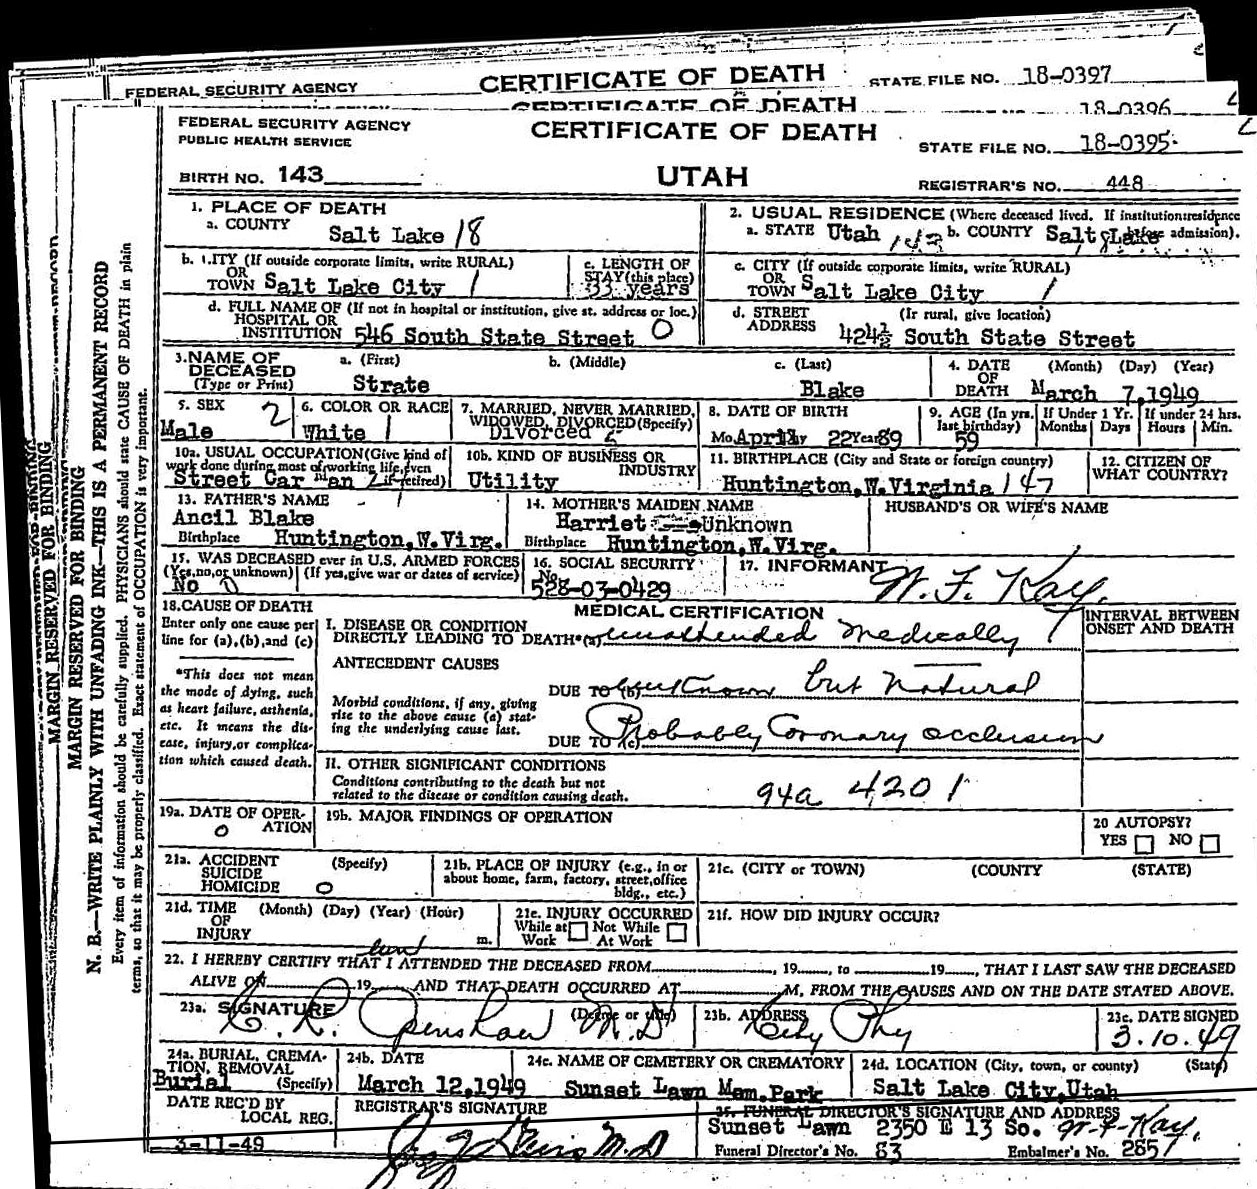 FEDERAL SECURITY AGENCY CERTIFICATE OF DEATH STATE FILE NO. 18-0397
CERTIFICATE OF DEATH 18-0396
FEDERAL SECURITY AGENCY
PUBLIC HEALTH SERVICE
CERTIFICATE OF DEATH
STATE FILE NO. 18-0395
BIRTH NO. 143 UTAH REGISTRAR'S NO. 448
1. PLACE OF DEATH
a. COUNTY Salt Lake 18
2. USUAL RESIDENCE (Where deceased lived. If institution:residence before admission).
a. STATE Utah b. COUNTY Salt Lake
b. CITY (If outside corporate limits, write RURAL)
OR
TOWN Salt Lake City 1
c. LENGTH OF
STAY (this place)
33 years
c. CITY (If outside corporate limits, write RURAL)
OR
TOWN Salt Lake City 1
d. FULL NAME OF (If not in hospital or institution, give st. address or loc.)
HOSPITAL OR
INSTITUTION 546 South State Street 0
d. STREET (If rural, give location)
ADDRESS 424½ South State Street
3. NAME OF DECEASED
(Type or Print)
a. (First) b. (Middle) c. (Last)
Strate Blake
4. DATE OF DEATH (Month) (Day) (Year)
March 7,1949
5. SEX 2
Male
6. COLOR OR RACE
White 1
7. MARRIED, NEVER MARRIED,
WIDOWED, DIVORCED (Specify)
Divorced 2
8. DATE OF BIRTH
Mo. April 22 Year 89
9. AGE (In yrs. last birthday)
59
If Under 1 Yr.
Months Days
If under 24 hrs.
Hours Min.
10a. USUAL OCCUPATION (Give kind of
work done during most of working life, even
if retired)
Street Car Man
10b. KIND OF BUSINESS OR
INDUSTRY
Utility
11. BIRTHPLACE (City and State or foreign country)
Huntington,W.Virginia 147
12. CITIZEN OF
WHAT COUNTRY?
13. FATHER'S NAME
Ancil Blake
Birthplace Huntington,W.Virg.
14. MOTHER'S MAIDEN NAME
Harriet Unknown
Birthplace Huntington,W.Virg.
HUSBAND'S OR WIFE'S NAME
15. WAS DECEASED ever in U.S. ARMED FORCES
(Yes,no,or unknown) (If yes,give war or dates of service)
No 0
16. SOCIAL SECURITY
No.
528-03-0429
17. INFORMANT
W. F. Kay.
18.CAUSE OF DEATH
Enter only one cause per
line for (a),(b),and (c)
*This does not mean
the mode of dying, such
as heart failure, asthenia,
etc. It means the dis-
ease, injury,or complica-
tion which caused death.
MEDICAL CERTIFICATION
I. DISEASE OR CONDITION
DIRECTLY LEADING TO DEATH*(a) unattended medically
ANTECEDENT CAUSES
DUE TO (b) unknown but natural
Morbid conditions, if any, giving
rise to the above cause (a) stat-
ing the underlying cause last.
DUE TO (c) Probably Coronary occlusion
II. OTHER SIGNIFICANT CONDITIONS
Conditions contributing to the death but not
related to the disease or condition causing death.
94a 4201
INTERVAL BETWEEN
ONSET AND DEATH
19a. DATE OF OPER-
ATION
0
19b. MAJOR FINDINGS OF OPERATION
20 AUTOPSY?
YES NO
21a. ACCIDENT (Specify)
SUICIDE
HOMICIDE 0
21b. PLACE OF INJURY (e.g., in or
about home, farm, factory, street,office
bldg., etc.)
21c. (CITY or TOWN) (COUNTY) (STATE)
21d. TIME (Month) (Day) (Year) (Hour)
OF
INJURY m.
21e. INJURY OCCURRED
While at Not While
Work At Work
21f. HOW DID INJURY OCCUR?
22. I HEREBY CERTIFY THAT I ATTENDED THE DECEASED FROM , 19 , to 19 , THAT I LAST SAW THE DECEASED
ALIVE ON 19 AND THAT DEATH OCCURRED AT M, FROM THE CAUSES AND ON THE DATE STATED ABOVE.
23a. SIGNATURE (Degree or title)
C. R. Openshaw M.D.
23b. ADDRESS
City Phy
23c. DATE SIGNED
3.10.49
24a. BURIAL, CREMA-
TION, REMOVAL
Burial (Specify)
24b. DATE
March 12,1949
24c. NAME OF CEMETERY OR CREMATORY
Sunset Lawn Mem.Park
24d. LOCATION (City, town, or county) (State)
Salt Lake City,Utah
DATE REC'D BY
LOCAL REG.
3-11-49
REGISTRAR'S SIGNATURE
M.D
25. FUNERAL DIRECTOR'S SIGNATURE AND ADDRESS
Sunset Lawn 2350 E 13 So. W-F-Kay.
Funeral Director's No. 83 Embalmer's No. 2857
MARGIN RESERVED FOR BINDING
MARGIN RESERVED FOR BINDING
N. B.—WRITE PLAINLY WITH UNFADING INK—THIS IS A PERMANENT RECORD
Every item of information should be carefully supplied. PHYSICIANS should state CAUSE OF DEATH in plain
terms, so that it may be properly classified. Exact statement of OCCUPATION is very important.